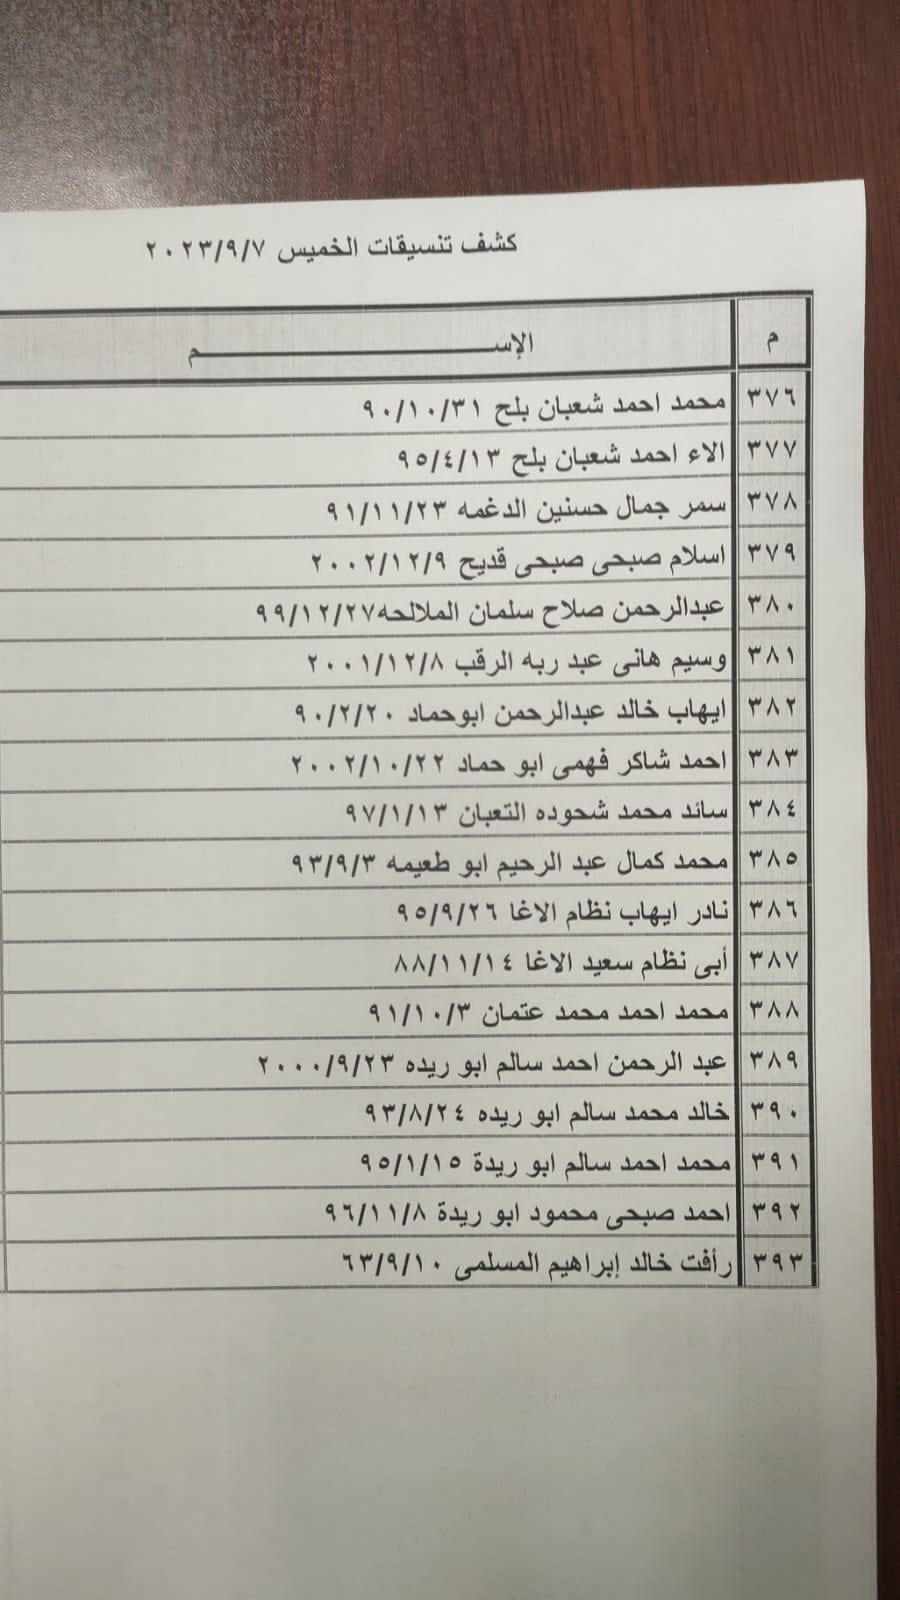 كشف تنسيقات الخميس ٢٠٢٣/٩/٧
م الإســـــــــــــــــــــم
٣٧٦ محمد احمد شعبان بلح ٩٠/١٠/٣١
٣٧٧ الاء احمد شعبان بلح ٩٥/٤/١٣
٣٧٨ سمر جمال حسنين الدغمه ٩١/١١/٢٣
٣٧٩ اسلام صبحى صبحى قديح ٢٠٠٢/١٢/٩
٣٨٠ عبدالرحمن صلاح سلمان الملالحه٩٩/١٢/٢٧
٣٨١ وسيم هانى عبد ربه الرقب ٢٠٠١/١٢/٨
٣٨٢ ايهاب خالد عبدالرحمن ابوحماد ٩٠/٢/٢٠
٣٨٣ احمد شاكر فهمى ابو حماد ٢٠٠٢/١٠/٢٢
٣٨٤ سائد محمد شحوده التعبان ٩٧/١/١٣
٣٨٥ محمد كمال عبد الرحيم ابو طعيمه ٩٣/٩/٣
٣٨٦ نادر ايهاب نظام الاغا ٩٥/٩/٢٦
٣٨٧ أبى نظام سعيد الاغا ٨٨/١١/١٤
٣٨٨ محمد احمد محمد عتمان ٩١/١٠/٣
٣٨٩ عبد الرحمن احمد سالم ابو ريده ٢٠٠٠/٩/٢٣
٣٩٠ خالد محمد سالم ابو ريده ٩٣/٨/٢٤
٣٩١ محمد احمد سالم ابو ريدة ٩٥/١/١٥
٣٩٢ احمد صبحى محمود ابو ريدة ٩٦/١١/٨
٣٩٣ رأفت خالد إبراهيم المسلمى ٦٣/٩/١٠